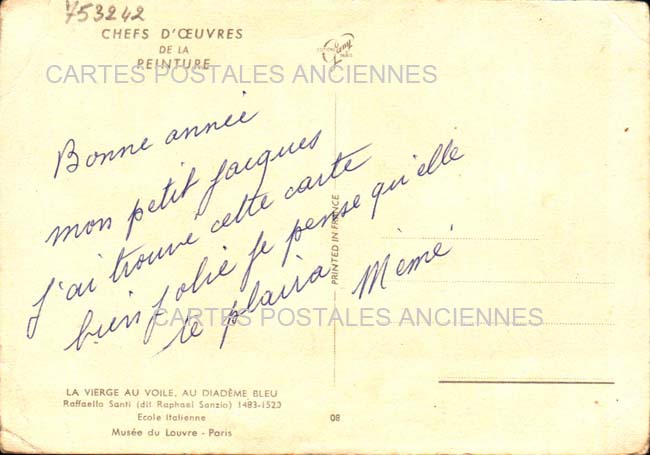 753242
CHEFS D'ŒUVRES
DE LA
PEINTURE
EDITIONS Lamy PARIS
CARTES POSTALES ANCIENNES
Bonne année
mon petit Jacques
J'ai trouvé cette carte
bien jolie je pense qu'elle
te plaira Mémé
PRINTED IN FRANCE
CARTES POSTALES ANCIENNES
LA VIERGE AU VOILE, AU DIADÈME BLEU
Raffaello Santi (dit Raphael Sanzio) 1483-1520
Ecole Italienne
Musée du Louvre - Paris
80